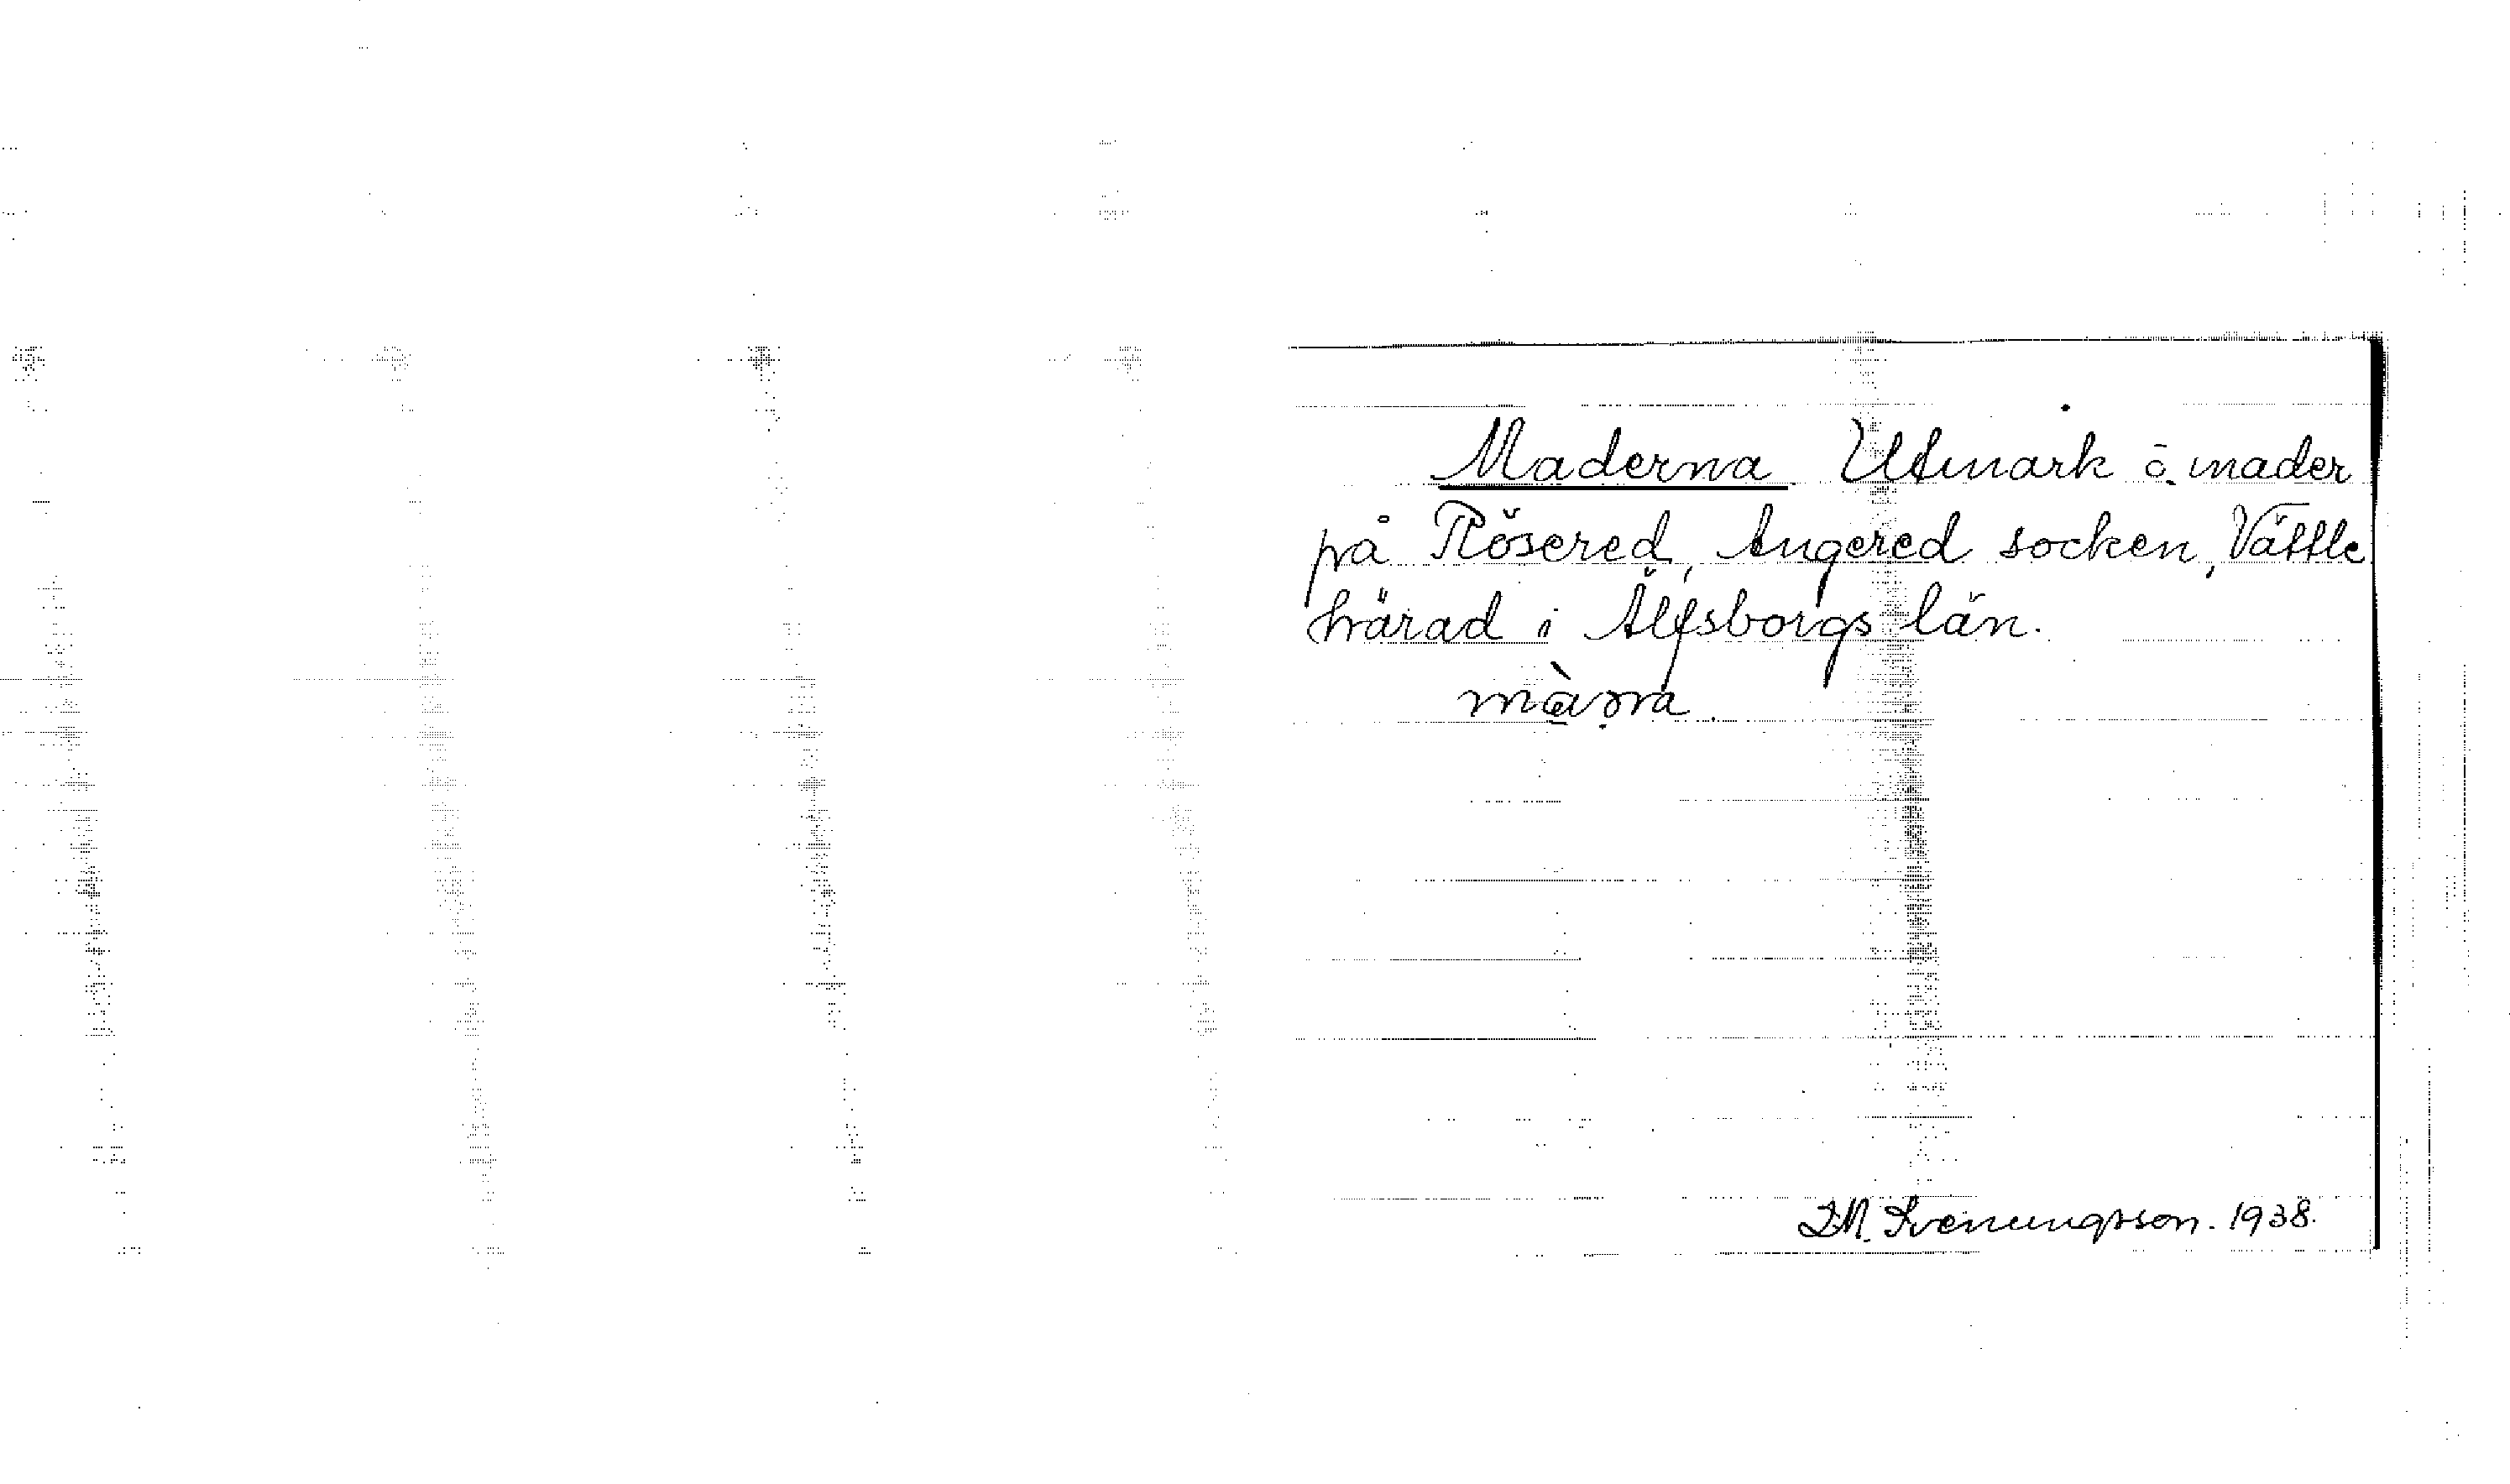 Maderna Utmark o. mader
på Rösered, Angered socken, Vättle
härad i Älfsborgs län.
I.M. Svenungsson. 1938.